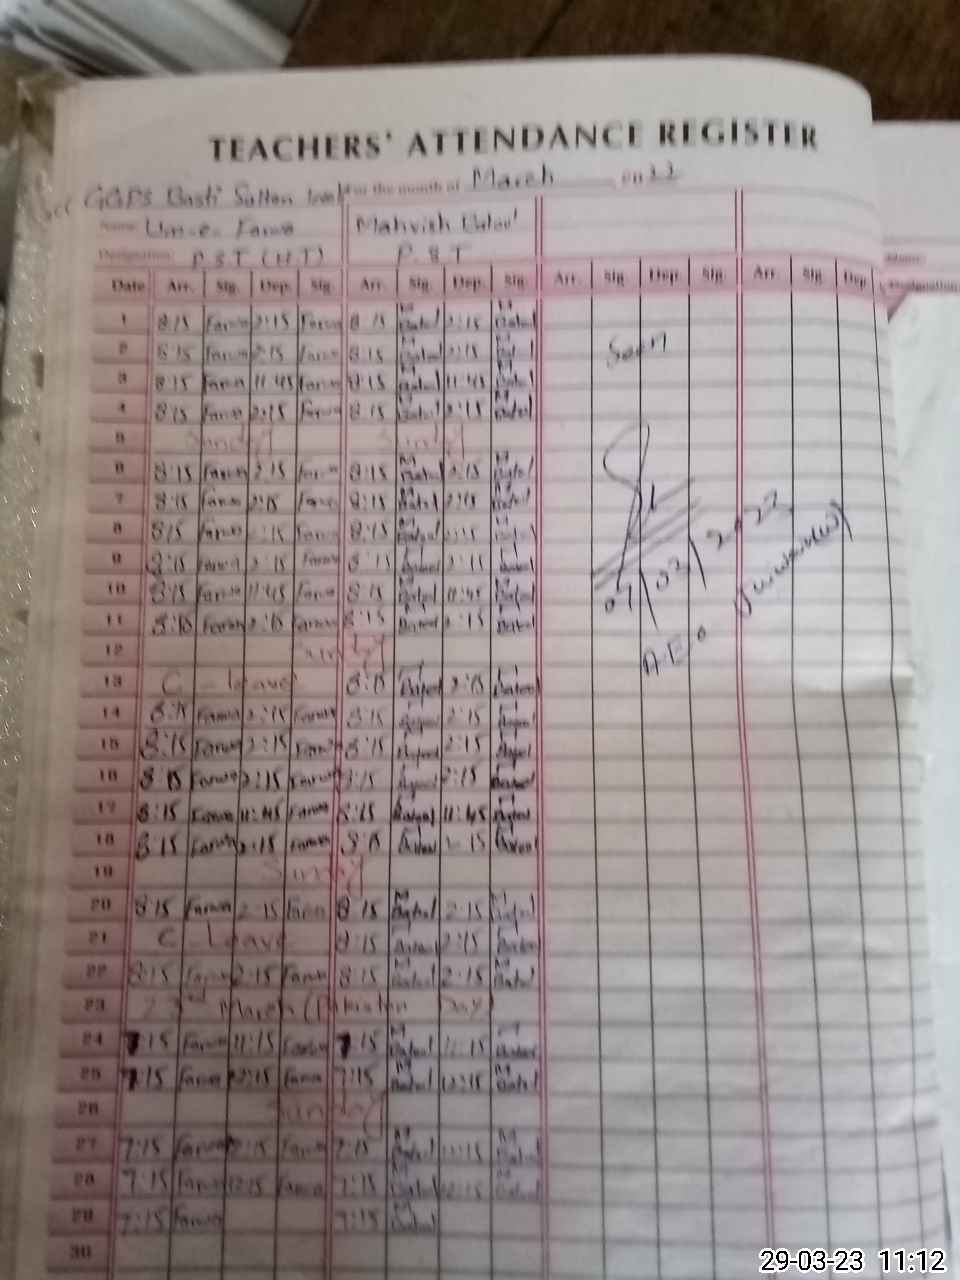 TEACHERS' ATTENDANCE REGISTER
GGPS Basti Sultan For the month of March
Name Um-e-Farwa Mahvish Batool
Designation P.S.T (H.T) P.S.T
Date Arr. Sig. Dep. Sig. Arr. Sig. Dep. Sig. Arr. Sig Dep. Sig. Arr. Sig. Dep
1 8:15 Farwa 2:15 Farwa 8:15 M Batool 2:15 M Batool
2 8:15 Farwa 2:15 Farwa 8:15 M Batool 2:15 M Batool Seen
3 8:15 Farwa 11:45 Farwa 8:15 M Batool 11:45 M Batool
4 8:15 Farwa 2:15 Farwa 8:15 M Batool 2:15 M Batool
5 Sunday Sunday
6 8:15 Farwa 2:15 Farwa 8:15 M Batool 2:15 M Batool
7 8:15 Farwa 2:15 Farwa 8:15 M Batool 2:15 M Batool
8 8:15 Farwa 2:15 Farwa 8:15 M Batool 2:15 M Batool
9 8:15 Farwa 2:15 Farwa 8:15 Batool 2:15 Batool
10 8:15 Farwa 11:45 Farwa 8:15 M Batool 11:45 M Batool
11 8:15 Farwa 2:15 Farwa 8:15 Batool 2:15 Batool
12 Sunday A.E.O
13 C-leave 8:15 Batool 2:15 Batool
14 8:15 Farwa 2:15 Farwa 8:15 Batool 2:15 Batool
15 8:15 Farwa 2:15 Farwa 8:15 Batool 2:15 Batool
16 8:15 Farwa 2:15 Farwa 8:15 Batool 2:15 Batool
17 8:15 Farwa 11:45 Farwa 8:15 Batool 11:45 Batool
18 8:15 Farwa 2:15 Farwa 8:15 Batool 2:15 Batool
19 Sunday
20 8:15 Farwa 2:15 Farwa 8:15 M Batool 2:15 M Batool
21 C-Leave 8:15 Batool 2:15 Batool
22 8:15 Farwa 2:15 Farwa 8:15 M Batool 2:15 M Batool
23 23rd March (Pakistan Day)
24 7:15 Farwa 11:15 Farwa 7:15 M Batool 11:15 M Batool
25 7:15 Farwa 12:15 Farwa 7:15 M Batool 12:15 M Batool
26 Sunday
27 7:15 Farwa 12:15 Farwa 7:15 M Batool 12:15 M Batool
28 7:15 Farwa 12:15 Farwa 7:15 M Batool 12:15 M Batool
29 7:15 Farwa 7:15 M Batool
30
29-03-23 11:12